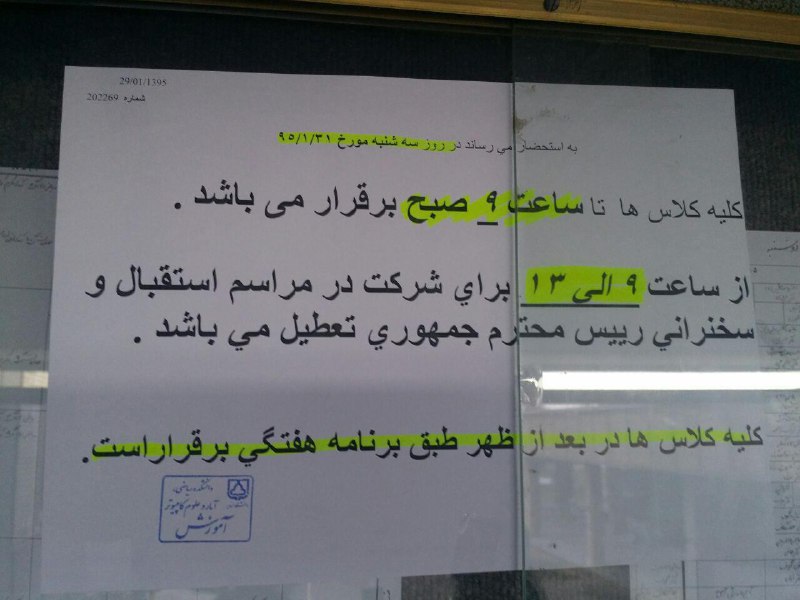 29/01/1395
شماره 202269
به استحضار مي رساند در روز سه شنبه مورخ ۹۵/۱/۳۱
کلیه کلاس ها تا ساعت ۹ صبح برقرار می باشد .
از ساعت ۹ الی ۱۳ براي شرکت در مراسم استقبال و
سخنراني رییس محترم جمهوري تعطیل مي باشد .
کلیه کلاس ها در بعد از ظهر طبق برنامه هفتگي برقراراست.
دانشکده ریاضی،
آمار و علوم کامپیوتر
آموزش